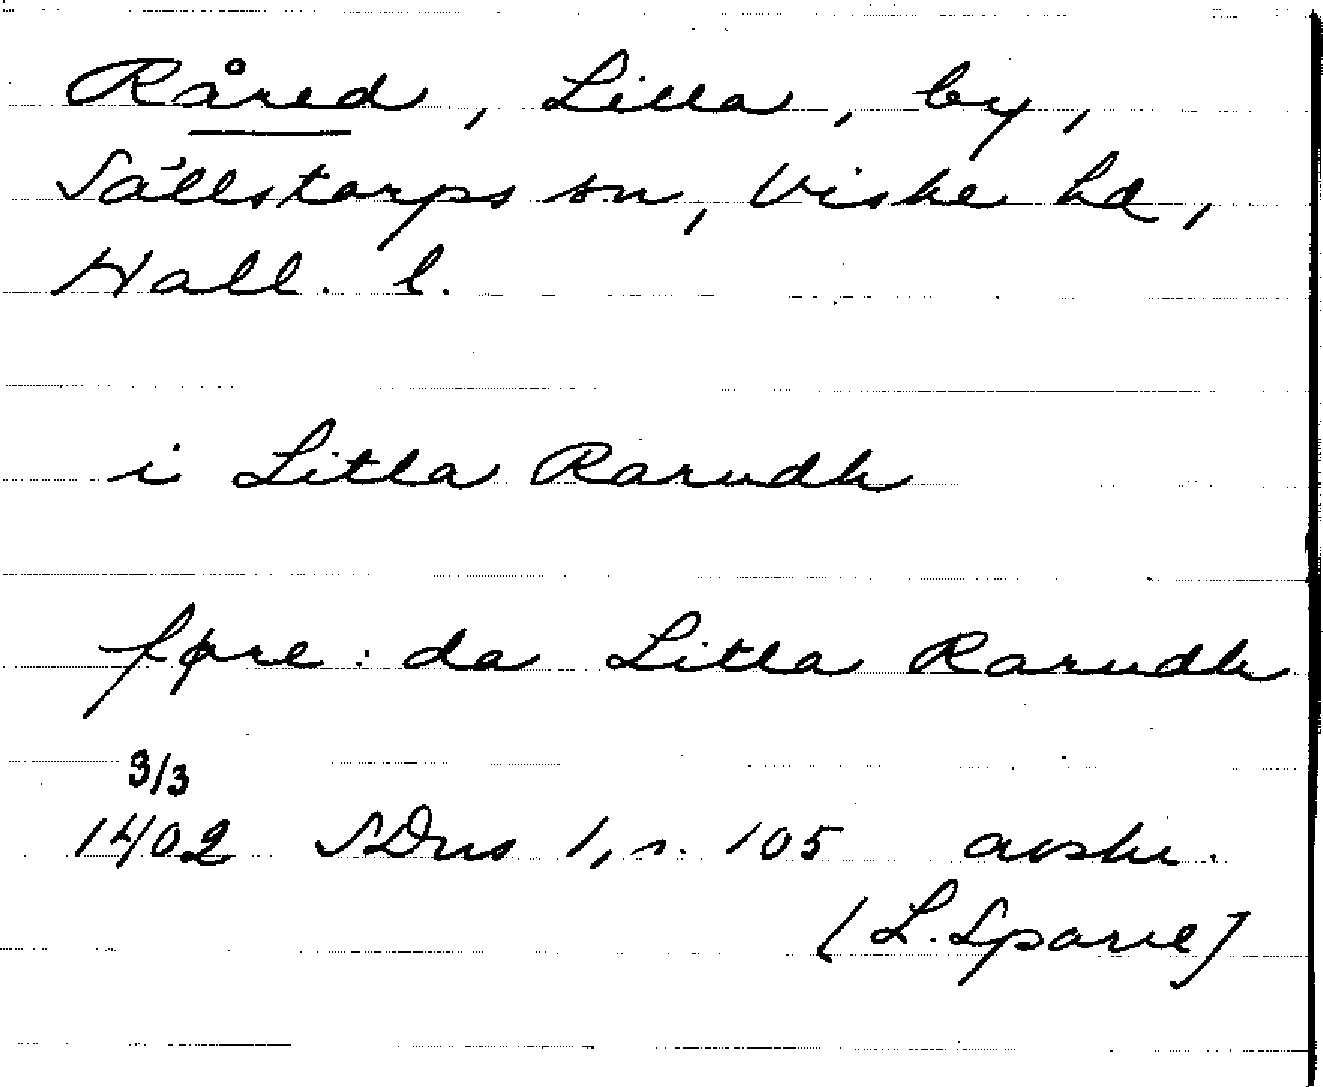 Råred, Lilla, by,
Sällstorps sn, Viske hd,
Hall. l.
i Litla Rarudh
føre: da Litla Rarudh
3/3
1402 SDns 1, s. 105 avskr.
[L. Sparre]